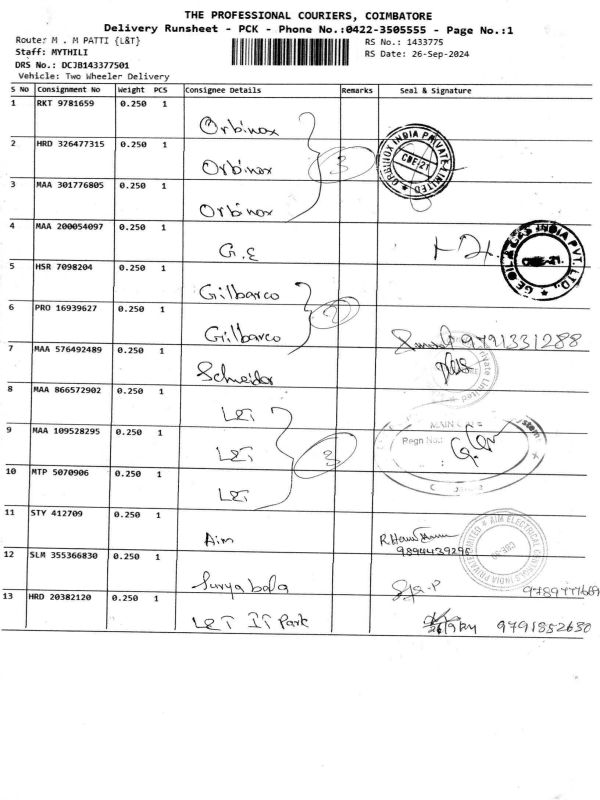 THE PROFESSIONAL COURIERS, COIMBATORE
Delivery Runsheet - PCK - Phone No.:0422-3505555 - Page No.:1
Route: M . M PATTI {L&T} RS No.: 1433775
Staff: MYTHILI RS Date: 26-Sep-2024
DRS No.: DCJB143377501
Vehicle: Two Wheeler Delivery
S No Consignment No Weight PCS Consignee Details Remarks Seal & Signature
1 RKT 9781659 0.250 1 Orbinox
2 HRD 326477315 0.250 1 Orbinox 3 ORBINOX INDIA PRIVATE LIMITED CBE-21
3 MAA 301776805 0.250 1 Orbinox
4 MAA 200054097 0.250 1 G.E GE OIL & GAS INDIA PVT. LTD.,
5 HSR 7098204 0.250 1 Gilbarco
6 PRO 16939627 0.250 1 Gilbarco 2 9791331288
7 MAA 576492489 0.250 1 Schneider Private Limited
8 MAA 866572902 0.250 1 L&T
9 MAA 109528295 0.250 1 L&T 3 MAIN Regn No.:
10 MTP 5070906 0.250 1 L&T
11 STY 412709 0.250 1 Aim 9894439296 AIM ELECTRICAL PRIVATE LIMITED
12 SLM 355366830 0.250 1 Surya bala 9789777689
13 HRD 20382120 0.250 1 L&T IT Park 26/9 9791852630